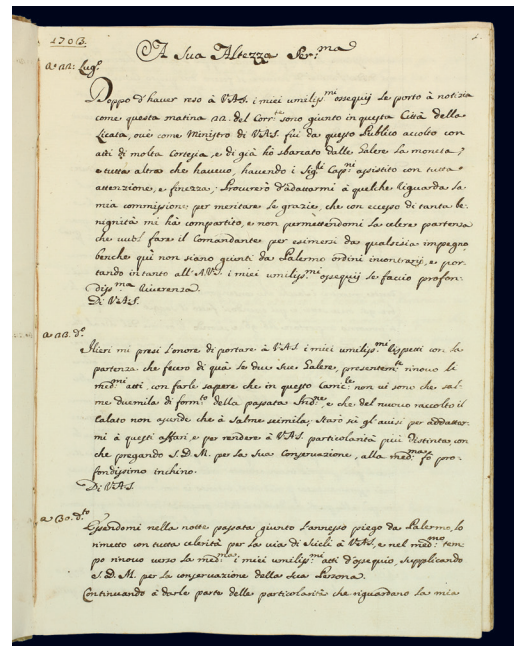 1703.
A Sua Altezza Ser:ma
a 22: Lug.o
Doppo d'haver reso à V.A.S. i miei umiliss.mi ossequij le porto à notizia
come questa matina 22. del Corr.te sono giunto in questa Città della
Licata, ove come Ministro di V.A.S. fui da questo Publico accolto con
atti di molta Cortesia, e di già hò sbarcato dalle Galere la moneta,
e tutta altra che havevo, havendo i Sig.ri Cap.ni assistito con tutta
attenzione, e finezza; Procurerò d'adattarmi à quelche riguarda la
mia commissione per meritare le grazie, che con eccesso di tanta be-
nignità mi hà compartito, e non permettendomi la celere partenza
che vuol fare il Comandante per esimersi da qualsisia impegno
benche quì non siano giunti da Palermo ordini incontrarij, e por-
tando intanto all'A.V.S. i miei umiliss.mi ossequij le faccio profon-
diss.ma Riverenza.
Di V.A.S.
a 22. d.o
Hieri mi presi l'onore di portare à V.A.S. i miei umiliss.mi rispetti con la
partenza che fecero di quà le due Sue Galere, presentem.te rinovo li
med.mi atti, con farle sapere che in questo non vi sono che sal-
me duemila di form.to della passata Ind.ne, e che del nuovo raccolto il
calato non ascende che à salme seimila; starò sù gl'avisi per addattar-
mi à questi affari, e per rendere à V.A.S. particolarità più distinta, con
che pregando S.D.M. per la Sua Conservazione, alla med.ma fò pro-
fondissimo inchino.
Di V.A.S.
a 30. d.to
Essendomi nella notte passata giunto l'annesso piego da Palermo, lo
rimetto con tutta celerità per la via di Sicli à V.A.S., e nel med.mo tem-
po rinovo verso la med.ma i miei umiliss.mi atti d'ossequio, supplicando
S.D.M. per la conservazione della Sua Persona.
Continuando à darle parte delle particolarità che riguardano la mia